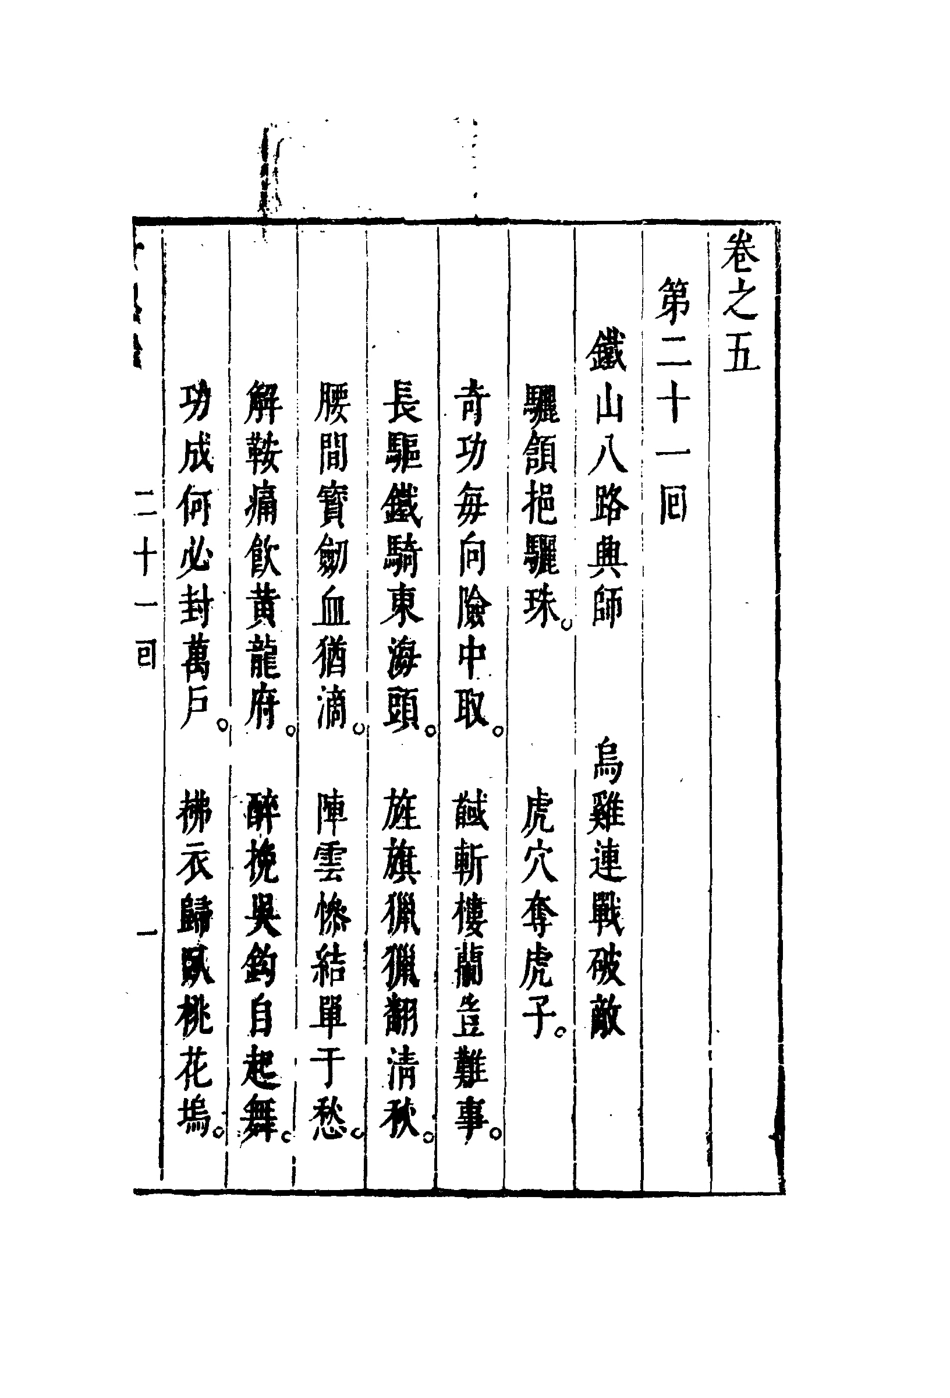 卷之五
第二十一囘
鐵山八路興師　烏雞連戰破敵
驪頷挹驪珠。　虎穴奪虎子。
奇功每向險中取。　馘斬樓蘭豈難事。
長驅鐵騎東海頭。　旌旗獵獵翻清秋。
腰間寳劒血猶滴。　陣雲慘結單于愁。
解鞍痛飲黃龍府。　醉挽吳鈎自起舞。
功成何必封萬戶。　拂衣歸臥桃花塢。
二十一囘　一